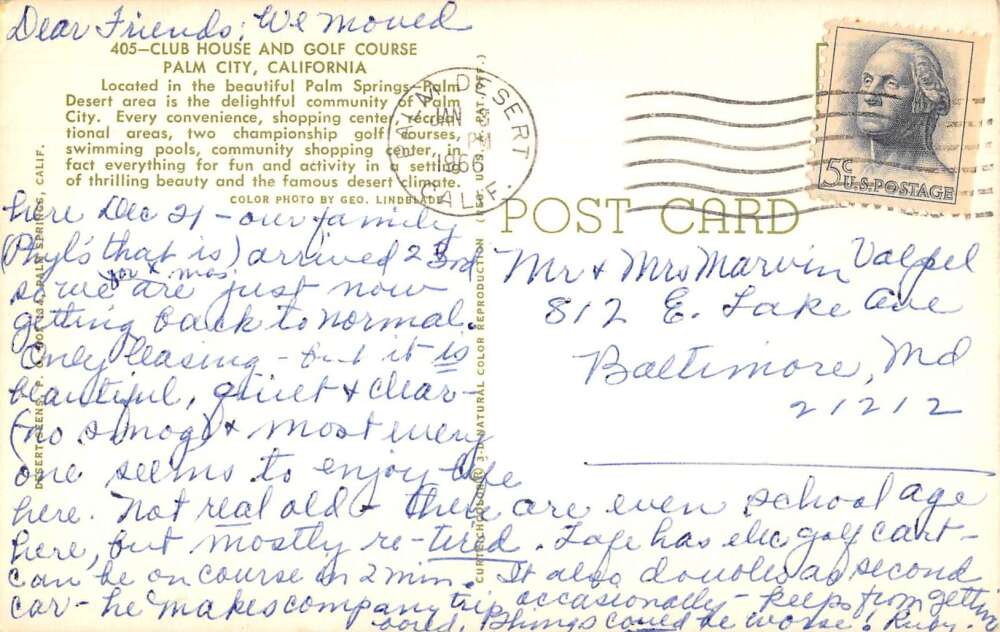 Dear Friends; We moved
405—CLUB HOUSE AND GOLF COURSE
PALM CITY, CALIFORNIA
Located in the beautiful Palm Springs-Palm
Desert area is the delightful community of Palm
City. Every convenience, shopping center, recrea-
tional areas, two championship golf courses,
swimming pools, community shopping center, in
fact everything for fun and activity in a setting
of thrilling beauty and the famous desert climate.
COLOR PHOTO BY GEO. LINDBLADE
here Dec 21 - our family
(Phyl's that is) arrived 23rd
for x mas
so we are just now
getting back to normal.
Only leasing - but it is
beautiful, quiet & clear -
(no smog) & most every
one seems to enjoy life
here. Not real old - there are even school age
here, but mostly re-tired. Lafe has elec golf cart -
can be on course in 2 min. It also doubles as second
car - he makes company trip occasionally - keeps from gettin
bored. Things could be worse! Ruby.
DESERT GREENS, P. O. PALM SPRINGS, CALIF.
CURTEICHCOLOR® 3-D NATURAL COLOR REPRODUCTION (REG. U.S.A. PAT. OFF.)
PALM DESERT
JAN
PM
1966
CALIF.
5c
U.S. POSTAGE
POST CARD
Mr & Mrs Marvin Valpel
812 E. Lake Ave
Baltimore, Md
21212